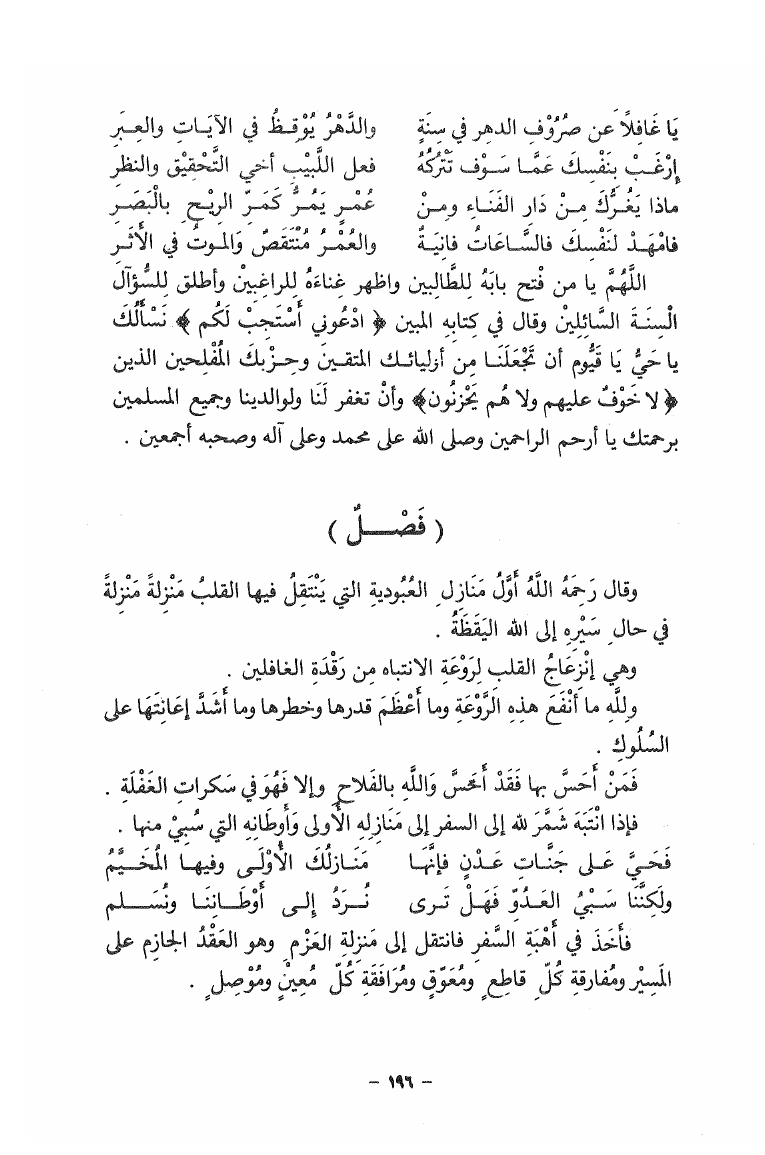 يَا غَافِلاً عن صُرُوْفِ الدهر في سِنَةٍ والدَّهْرُ يُوْقِظُ في الآيَاتِ والعِبَرِ
إِرْغَبْ بِنَفْسِكَ عَمَّا سَوْف تَتْرُكُهُ فعل اللَّبِيْبِ أخي التَّحْقِيْق والنظرِ
ماذا يَغُرُّكَ مِنْ دَار الفَنَاء ومِنْ عُمْرٍ يَمُرُّ كَمَرِّ الرِيْحِ بالْبَصَرِ
فامْهَدْ لنَفْسِكَ فالسَّاعَاتُ فانِيَةٌ والعُمْرُ مُنْتَقَصٌ وَالموتُ في الأَثَرِ
اللَّهُمَّ يا من فْتح بابَهُ لِلطَّالِبين واظهر غِناءَهُ لِلراغِبِيْنَ وأطلق لِلسُّؤآل
الْسِنَةَ السَّائِلِيْنَ وقال في كِتابِهِ المبين ﴿ ادْعُوني أَسْتَجِبْ لَكُم ﴾ نَسْأَلُكَ
يا حَيُّ يَا قَيُّوم أن تَجْعَلَنَا مِن أوليائك المتقينَ وحِزْبِكَ المُفْلِحين الذين
﴿ لا خَوْفٌ عليهم ولا هُم يَحْزَنُون﴾ وأنْ تغفر لَنَا ولوالدينا وجميع المسلمين
برحمتك يا أرحم الراحمين وصلى الله على محمد وعلى آله وصحبه أجمعين .
( فَصْـــلٌ )
وقال رَحِمَهُ اللَّهُ أَوَّلُ مَنَازِلِ العُبُوديةِ التي يَنْتَقِلُ فيها القلبُ مَنْزِلةً مَنْزِلةً
في حالِ سَيْرِهِ إلى الله اليَقَظَةُ .
وهي إنْزِعَاجُ القلب لِرَوْعَةِ الانتباه مِن رَقْدَةِ الغافلين .
وللَّهِ ما أنْفَعَ هذِهِ الَرَّوْعَةِ وما أَعْظَمَ قدرها وخطرها وما أَشَدَّ إعَانَتَهَا على
السُلُوكِ .
فَمَنْ أَحَسَّ بها فَقَدْ أَحَسَّ وَاللَّهِ بالفَلاحِ وإلا فَهُوَ في سَكراتِ الغَفْلَةِ .
فإذا انْتَبَهَ شَمَّرَ لله إلى السفر إلى مَنَازِلِهِ الأولى وَأوطَانِهِ التي سُبِيْ منها .
فَحَيَّ عَلى جَنَّاتِ عَدْنٍ فإنَّهَا مَنَازلُكَ الأُوْلَى وفيها المُخَيَّمُ
ولَكِنَّنَا سَبْيُ العَدُوِّ فَهَلْ تَرى نُرَدُ إلى أَوْطَانِنَا ونُسَلم
فأخَذَ في أهْبَةِ السَّفرِ فانتقل إلى مَنزِلةِ العَزْمِ وهو العَقْدُ الجازِم على
المَسِيْر ومُفارقةِ كُلِّ قاطِعٍ ومُعَوّقٍ ومُرَافَقَةِ كُلّ مُعِيْنٍ ومُوْصِلٍ .
– ١٩٦ –